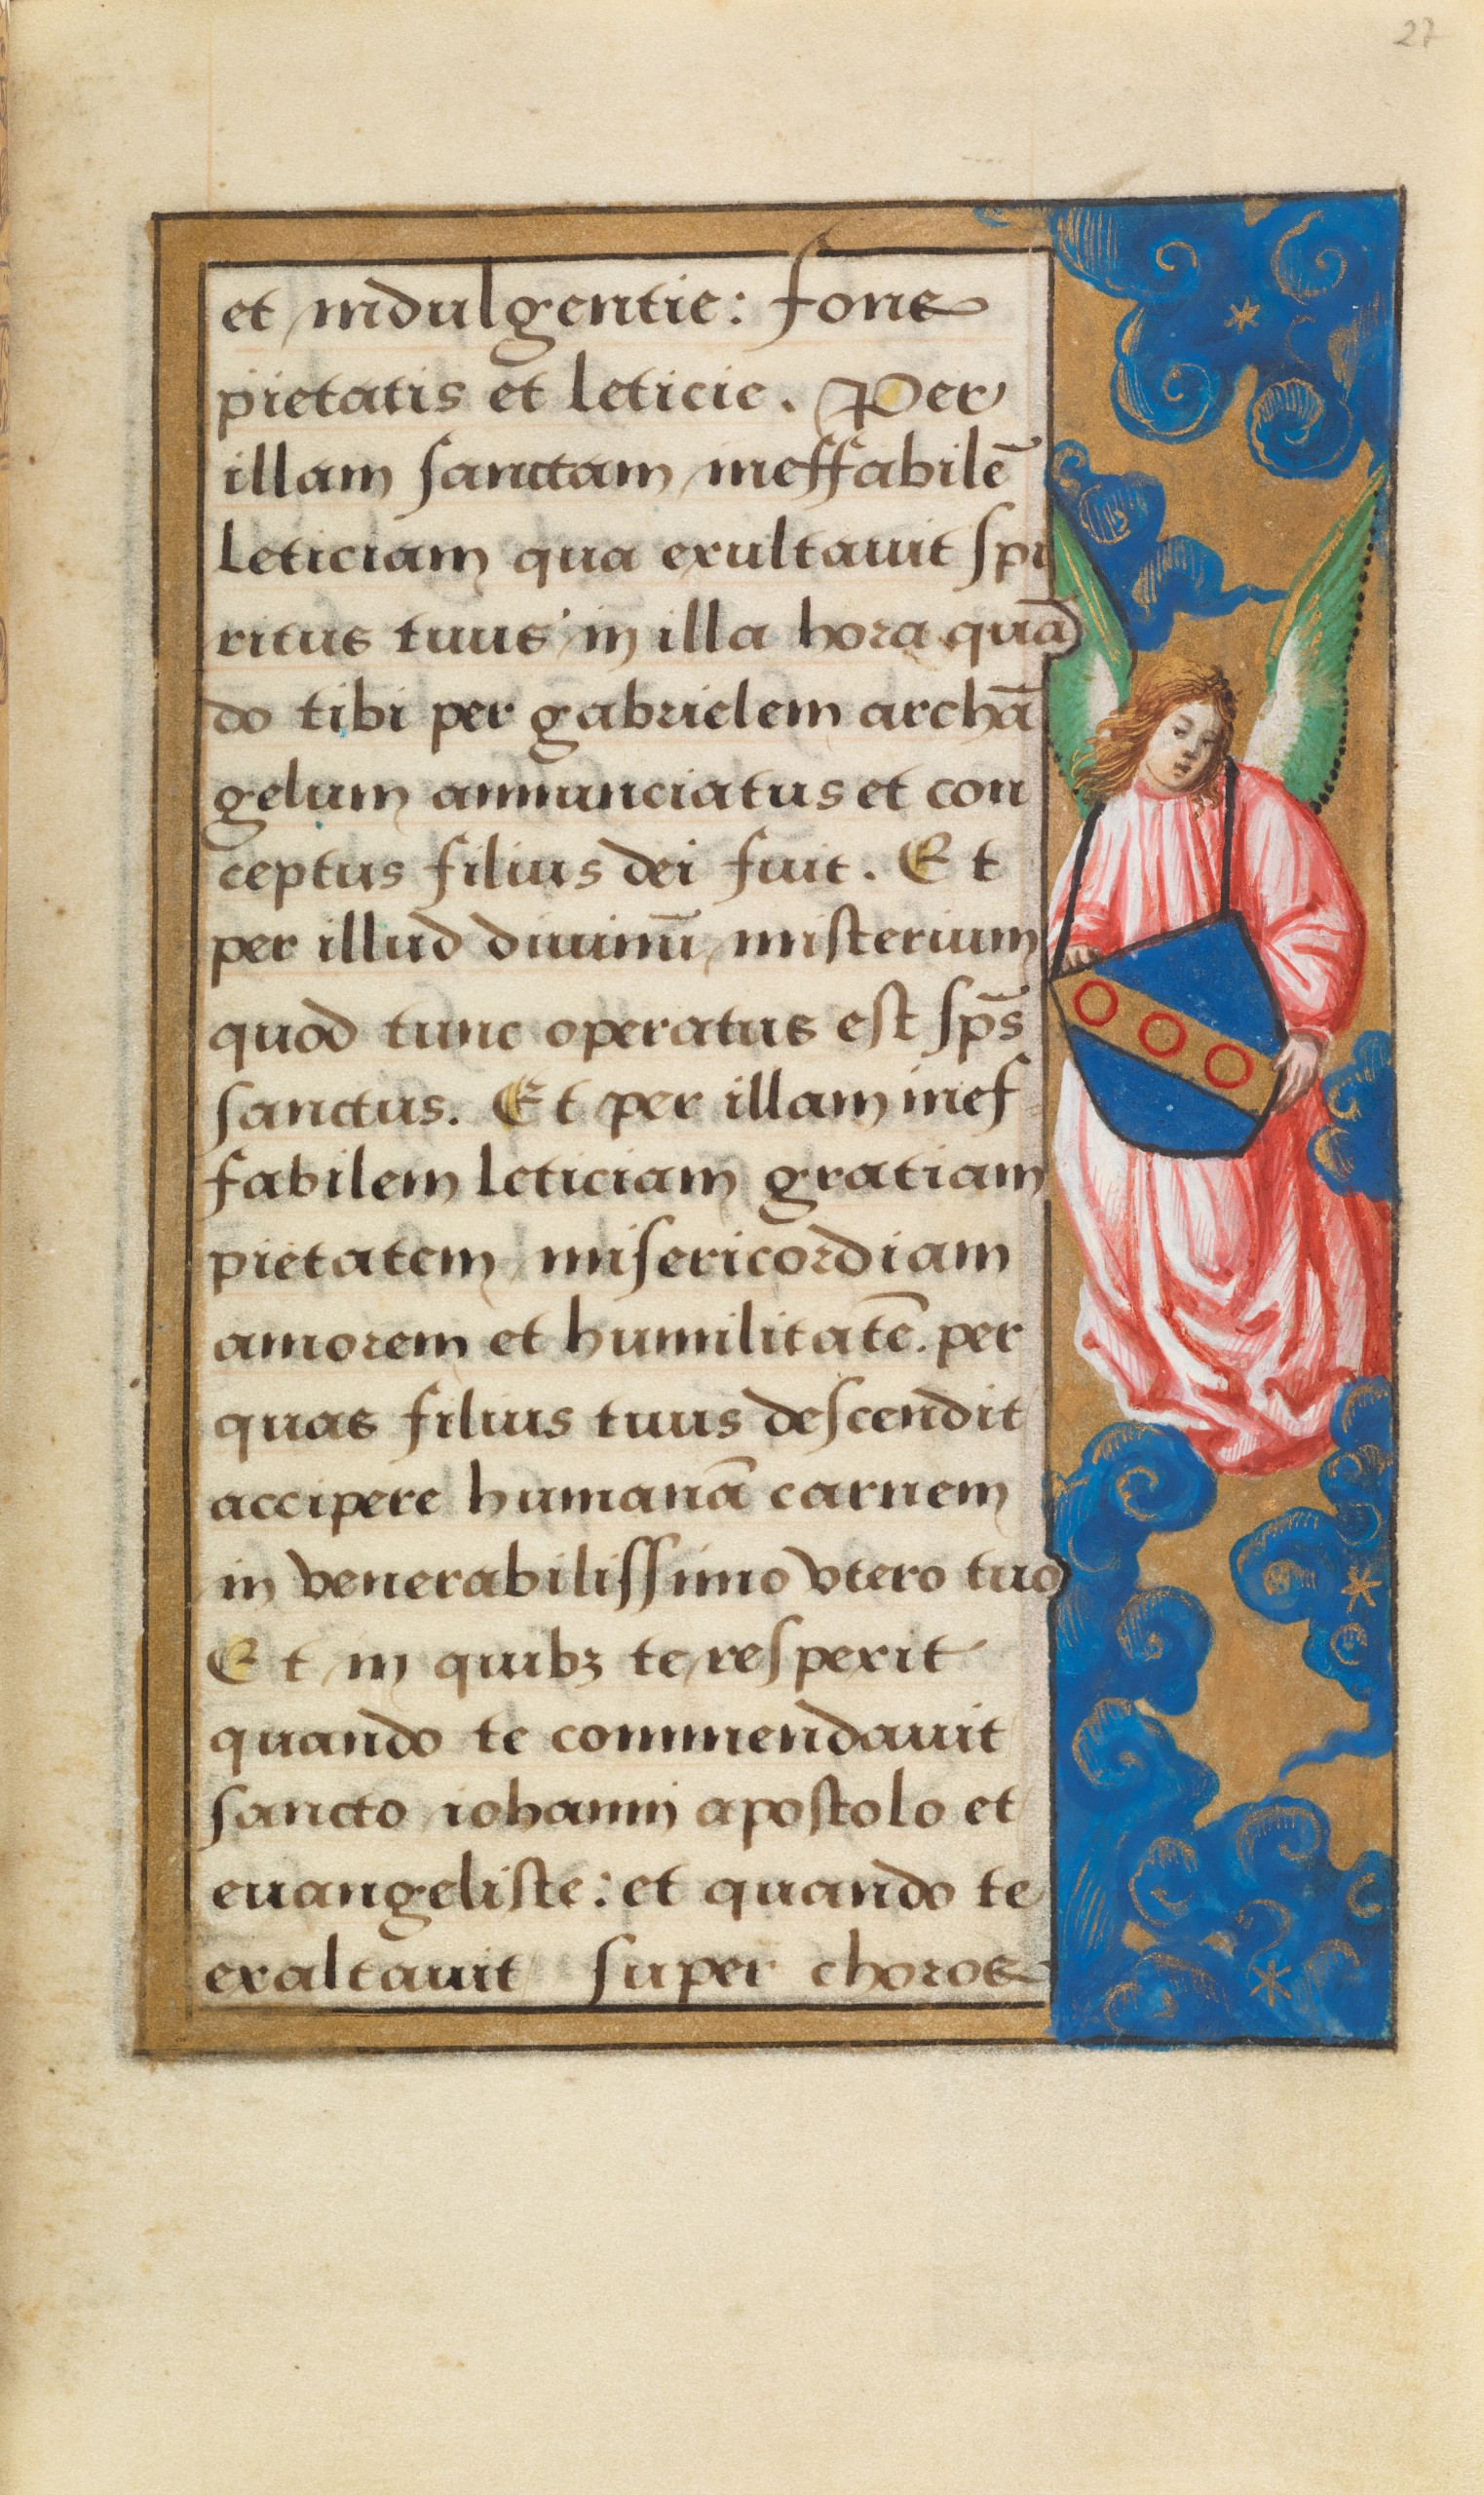 27
et indulgentie: fons
pietatis et leticie. Per
illam sanctam ineffabilē
leticiam qua exultauit spi
ritus tuus in illa hora quā
do tibi per gabrielem archā
gelum annunciatus et con
ceptus filius dei fuit. Et
per illud diuinū misterium
quod tunc operatus est sp̄s
sanctus. Et per illam inef
fabilem leticiam gratiam
pietatem misericordiam
amorem et humilitatē. per
quas filius tuus descendit
accipere humanā carnem
in venerabilissimo vtero tuo
Et in quibꝫ te respexit
quando te commendauit
sancto iohanni apostolo et
euangeliste: et quando te
exaltauit super choros